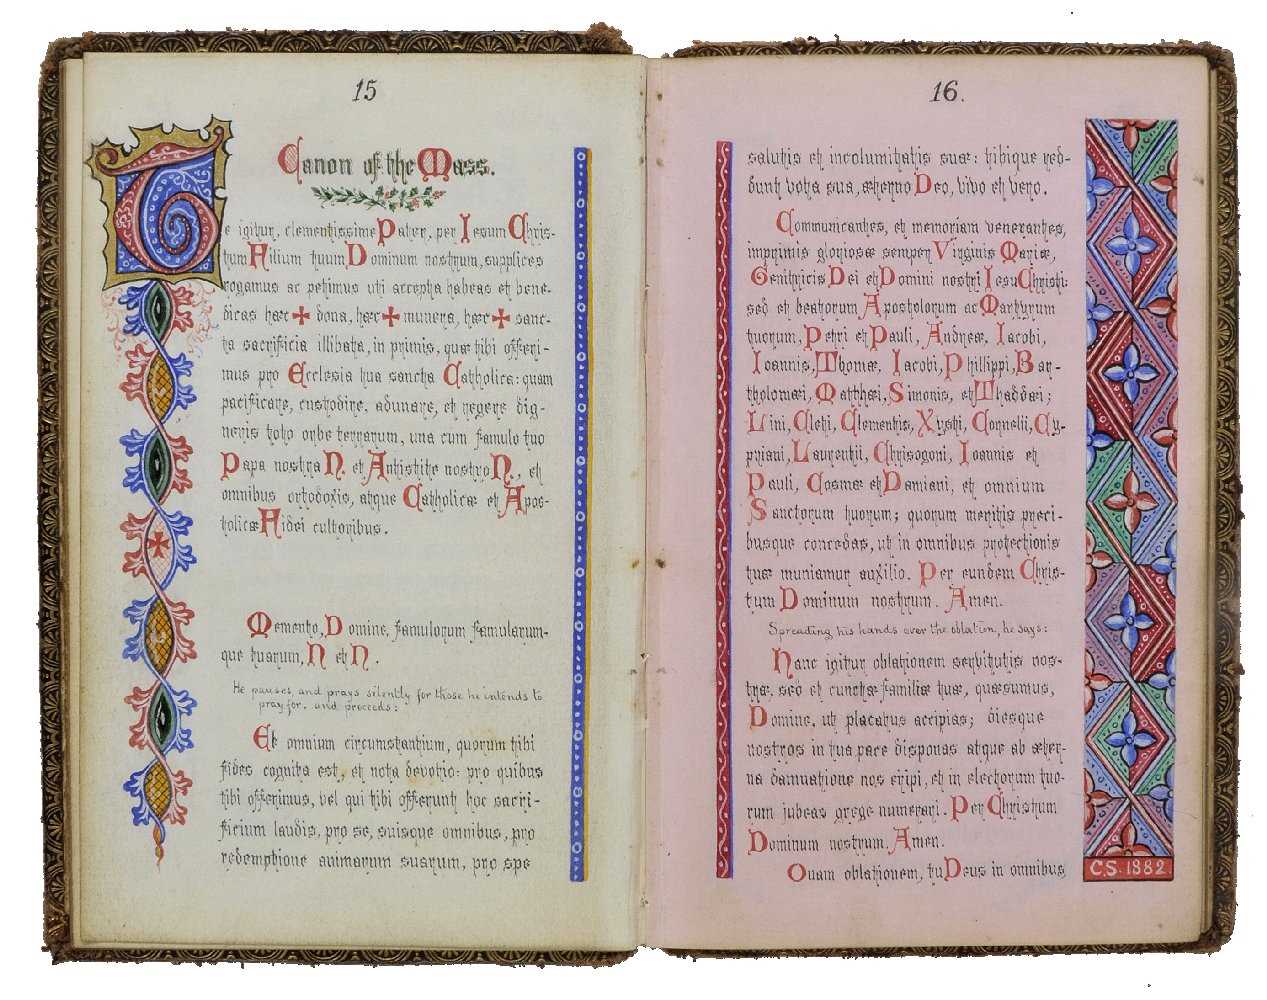 15
Canon of the Mass.
Te igitur, clementissime Pater, per Iesum Chris-
tum Filium tuum Dominum nostrum, supplices
rogamus ac petimus uti accepta habeas et bene-
dicas hæc ✠ dona, hæc ✠ munera, hæc ✠ sanc-
ta sacrificia illibata, in primis, quæ tibi offeri-
mus pro Ecclesia tua sancta Catholica: quam
pacificare, custodire, adunare, et regere dig-
neris toto orbe terrarum, una cum famulo tuo
Papa nostra N. et Antistite nostro N. et
omnibus ortodoxis, atque Catholicæ et Apos-
tolicæ Fidei cultoribus.
Memento, Domine, famulorum famularum-
que tuarum, N et N.
He pauses and prays silently for those he intends to
pray for, and proceeds:
Et omnium circumstantium, quorum tibi
fides cognita est, et nota devotio: pro quibus
tibi offerimus, vel qui tibi offerunt hoc sacri-
ficium laudis, pro se, suisque omnibus, pro
redemptione animarum suarum, pro spe
16.
salutis et incolumitatis suæ: tibique red-
dunt vota sua, æterno Deo, vivo et vero.
Communicantes, et memoriam venerantes,
imprimis gloriosæ semper Virginis Mariæ,
Genitricis Dei et Domini nostri Iesu Christi:
sed et beatorum Apostolorum ac Martyrum
tuorum, Petri et Pauli, Andreæ, Iacobi,
Ioannis, Thomæ, Iacobi, Phillippi, Bar-
tholomæi, Matthæi, Simonis, et Thaddæi;
Lini, Cleti, Clementis, Xysti, Cornelii, Cy-
priani, Laurentii, Chrisogoni, Ioannis et
Pauli, Cosmæ et Damiani, et omnium
Sanctorum tuorum; quorum meritis preci-
busque concedas, ut in omnibus protectionis
tuæ muniamur auxilio. Per eundem Chris-
tum Dominum nostrum. Amen.
Spreading his hands over the oblation, he says:
Hanc igitur oblationem servitutis nos-
træ, sed et cunctæ familiæ tuæ, quæsumus,
Domine, ut placatus accipias; diesque
nostros in tua pace disponas atque ab æter-
na damnatione nos eripi, et in electorum tuo-
rum jubeas grege numerari. Per Christum
Dominum nostrum. Amen.
Quam oblationem, tu Deus in omnibus
C.S. 1882.